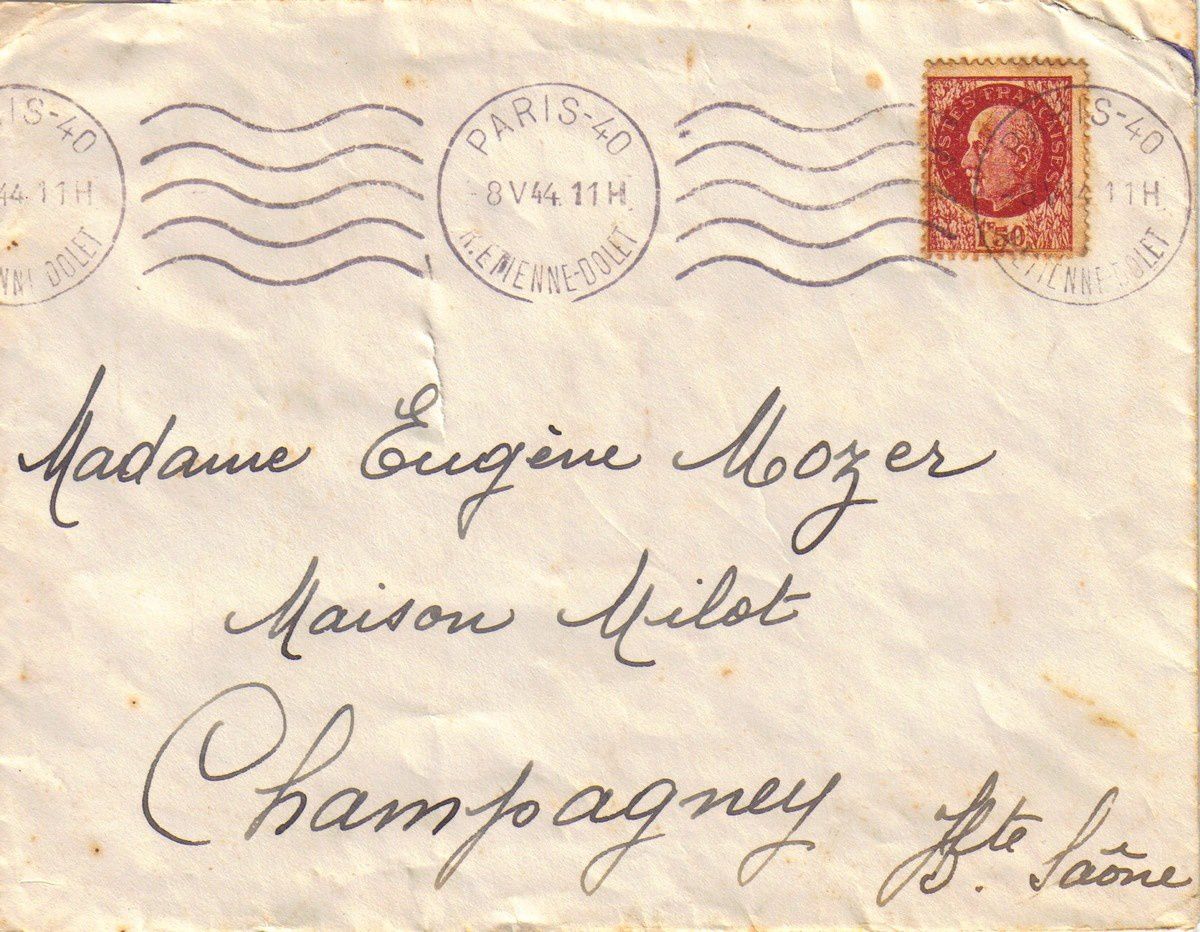 PARIS-40
-8 V44. 11H
R. ETIENNE-DOLET
IS-40
44. 11H
NNE DOLET
POSTES FRANÇAISES
1F50
IS-40
V 4 11H
ETIENNE-DOLET
Madame Eugène Mozer
Maison Milot
Champagney
Hte Saône